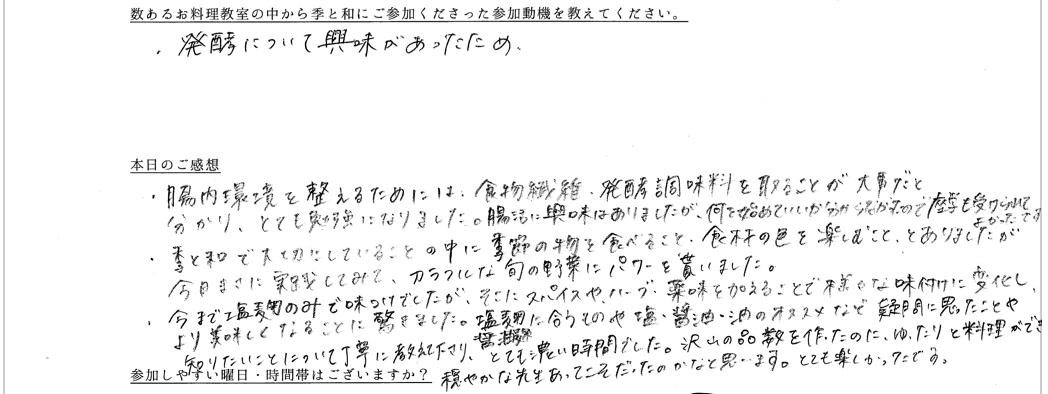 数あるお料理教室の中から季と和にご参加くださった参加動機を教えてください。
・発酵について興味があったため、
本日のご感想
・腸内環境を整えるためには、食物繊維、発酵調味料を取ることが大事だと
分かり、とても勉強になりました。腸活に興味はありましたが、何を始めていいか分からなかったので座学も受けられて
よかったです
・季と和で大切にしていることの中に季節の物を食べること、食材の色を楽しむこと、とありましたが
今日まさに実践してみて、カラフルな旬の野菜にパワーを貰いました。
・今まで塩麹のみで味つけでしたが、そこにスパイスやハーブ、薬味を加えることで様々な味付けに変化し、
より美味しくなることに驚きました。塩麹に合うものや塩・醤油・油のオススメなど疑問に思ったことや
知りたいことについて丁寧に教えて下さり、とても濃い時間でした。沢山の品数を作ったのに、ゆったりと料理ができ
参加しやすい曜日・時間帯はございますか？
穏やかな先生あってこそだったのかなと思います。とても楽しかったです。